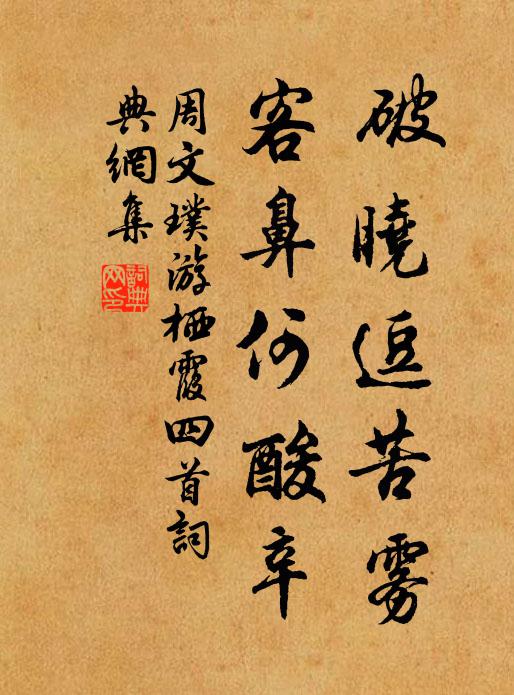 破曉逗苦雾
客鼻何酸辛
周文璞游栖霞四首詞
典網集
詞典网印